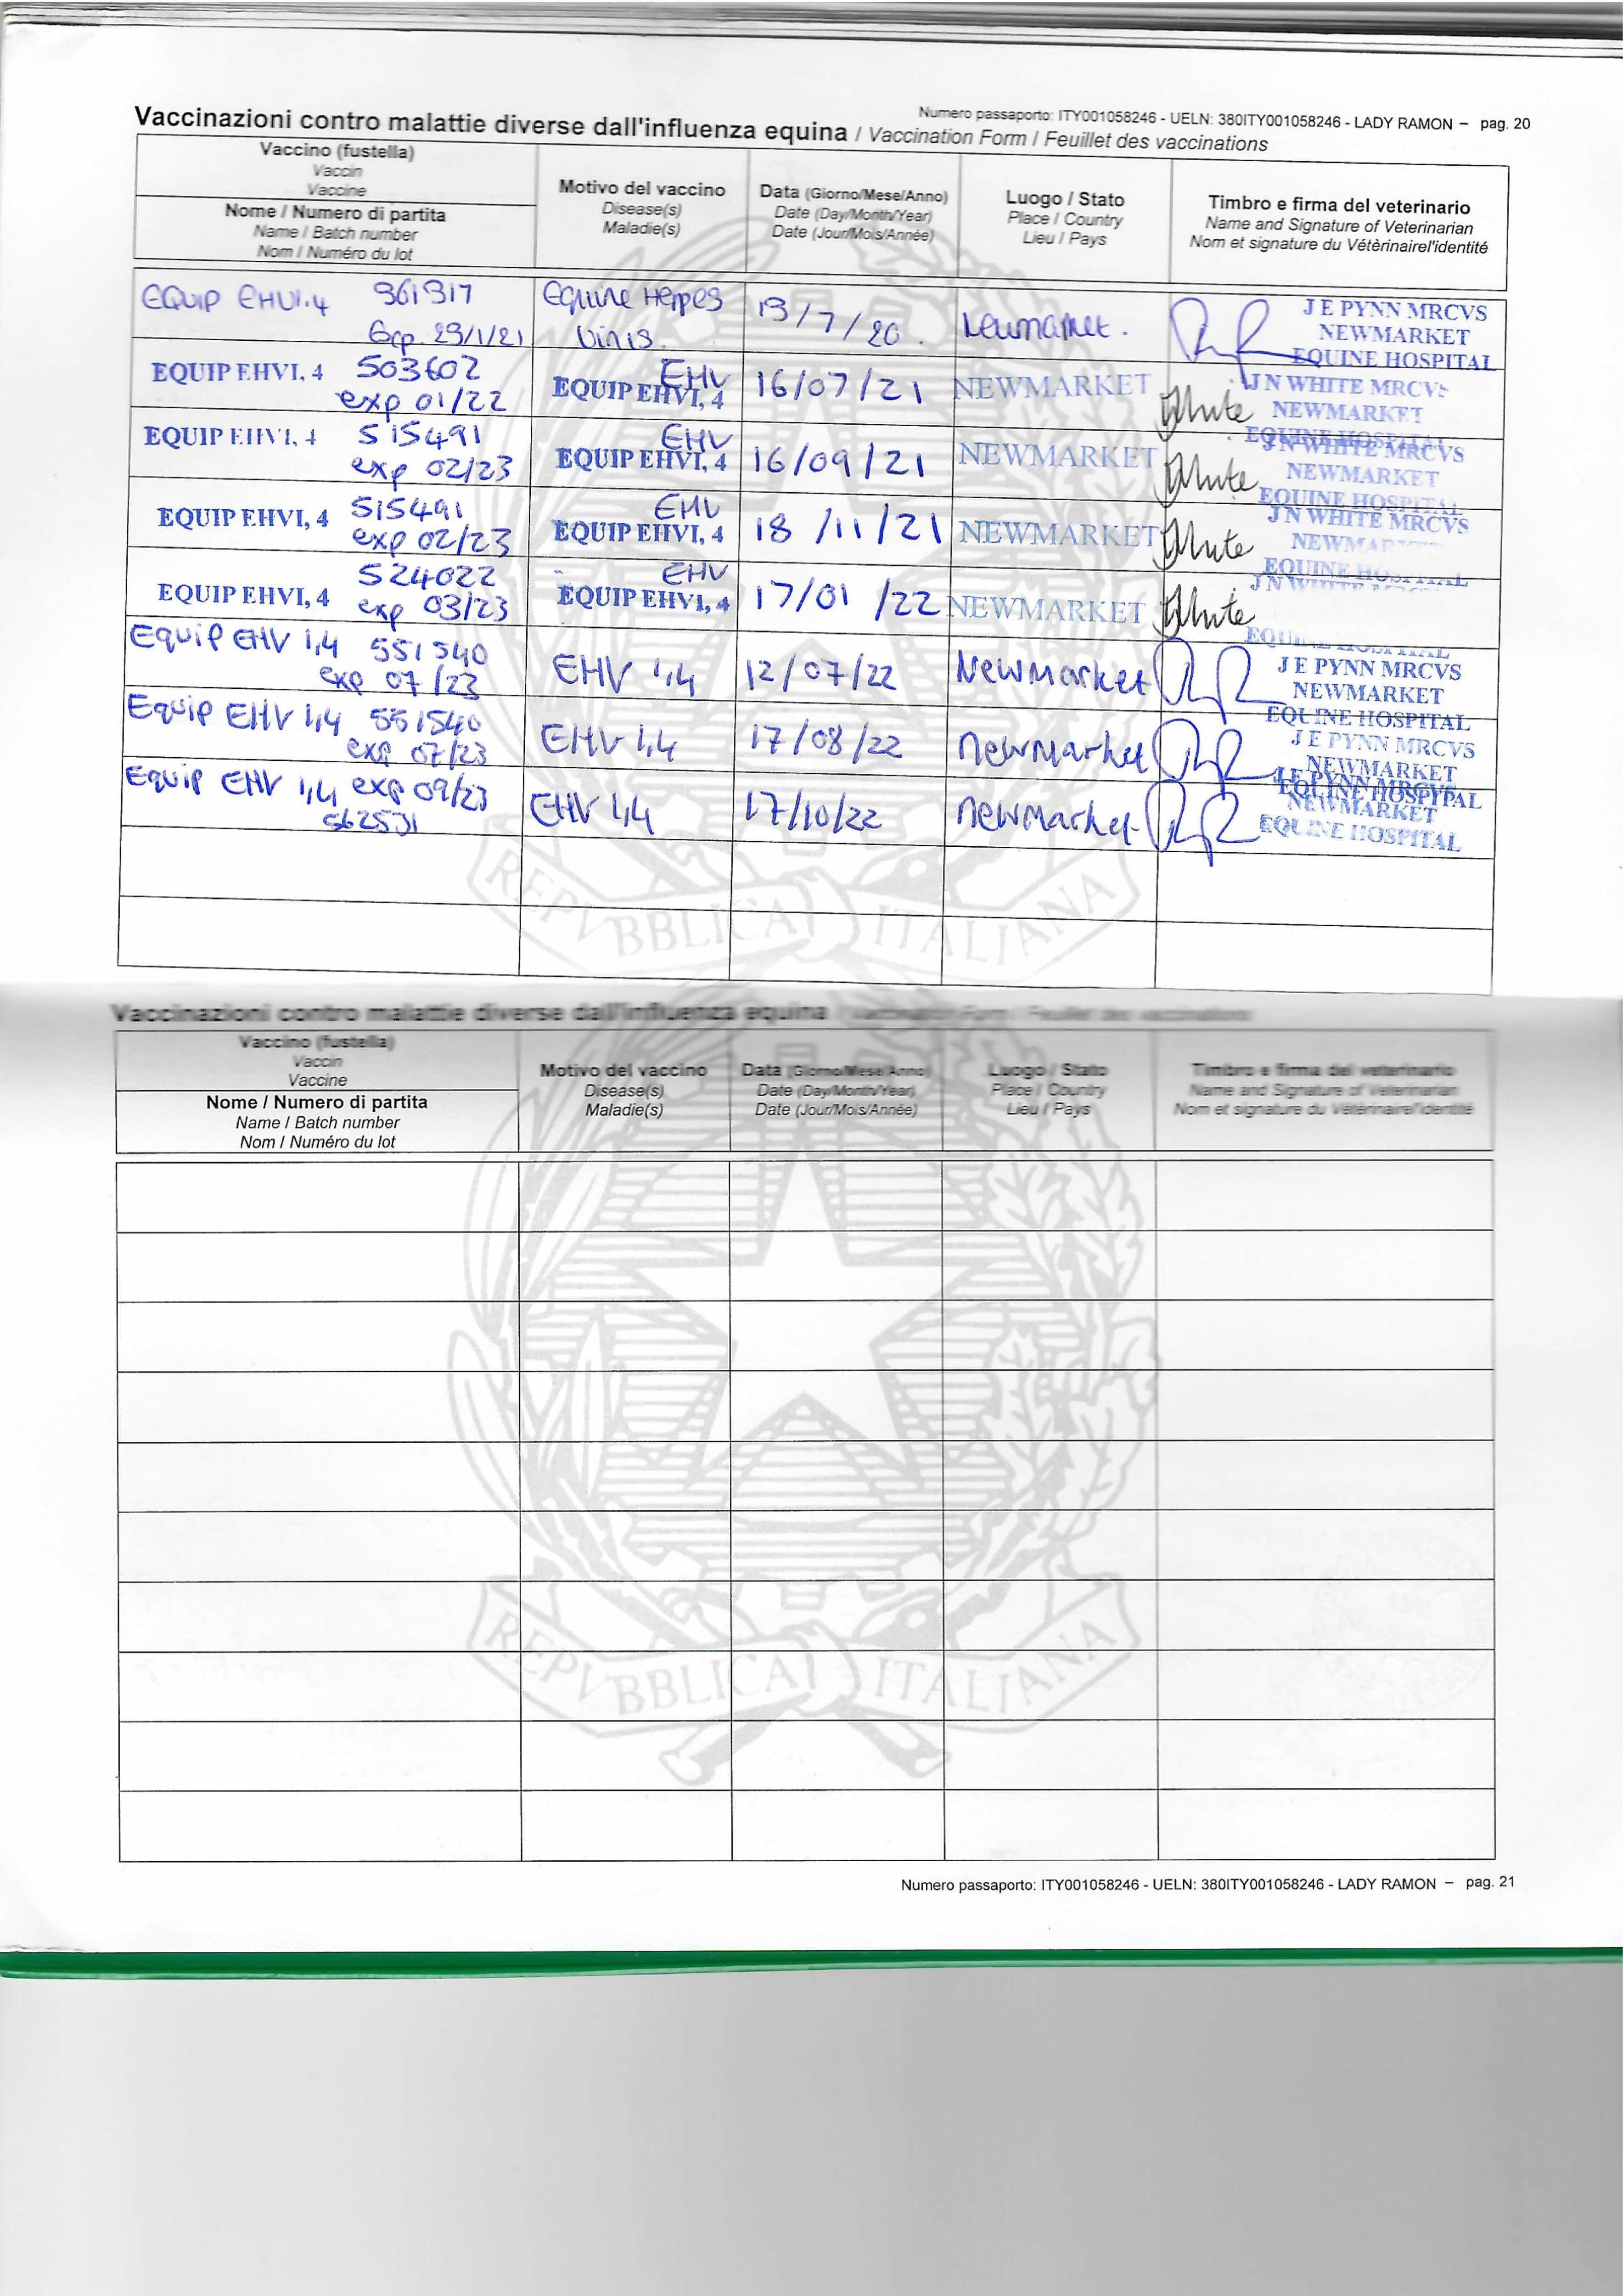 Numero passaporto: ITY001058246 - UELN: 380ITY001058246 - LADY RAMON – pag. 20
Vaccinazioni contro malattie diverse dall'influenza equina / Vaccination Form / Feuillet des vaccinations
Vaccino (fustella)
Vaccin
Vaccine
Nome / Numero di partita
Name / Batch number
Nom / Numéro du lot
Motivo del vaccino
Disease(s)
Maladie(s)
Data (Giorno/Mese/Anno)
Date (Day/Month/Year)
Date (Jour/Mois/Année)
Luogo / Stato
Place / Country
Lieu / Pays
Timbro e firma del veterinario
Name and Signature of Veterinarian
Nom et signature du Vétérinaire/l'identité
EQUIP EHV1.4 361317 Equine Herpes 13/7/20. Newmarket. J E PYNN MRCVS
Exp. 29/1/21 Virus. NEWMARKET
EQUINE HOSPITAL
EQUIP EHV1, 4 503602 EHV 16/07/21 NEWMARKET JN WHITE MRCVS
exp 01/22 EQUIP EHV1, 4 White NEWMARKET
EQUINE HOSPITAL
EQUIP EHV1, 4 515491 EHV 16/09/21 NEWMARKET JN WHITE MRCVS
exp 02/23 EQUIP EHV1, 4 White NEWMARKET
EQUINE HOSPITAL
EQUIP EHV1, 4 515491 EHV 18/11/21 NEWMARKET JN WHITE MRCVS
exp 02/23 EQUIP EHV1, 4 White NEWMARKET
EQUINE HOSPITAL
EQUIP EHV1, 4 524022 EHV 17/01/22 NEWMARKET JN WHITE
exp 03/23 EQUIP EHV1, 4 White
EQUINE HOSPITAL
Equip EHV 1,4 551540 EHV 1,4 12/07/22 Newmarket J E PYNN MRCVS
exp 07/23 NEWMARKET
EQUINE HOSPITAL
Equip EHV 1,4 551540 EHV 1,4 17/08/22 newmarket J E PYNN MRCVS
exp 07/23 NEWMARKET
EQUINE HOSPITAL
Equip EHV 1,4 exp 09/23 EHV 1,4 17/10/22 newmarket J E PYNN MRCVS
562531 NEWMARKET
EQUINE HOSPITAL
REPVBBLICA ITALIANA
Vaccinazioni contro malattie diverse dall'influenza equina / Vaccination Form / Feuillet des vaccinations
Vaccino (fustella)
Vaccin
Vaccine
Nome / Numero di partita
Name / Batch number
Nom / Numéro du lot
Motivo del vaccino
Disease(s)
Maladie(s)
Data (Giorno/Mese/Anno)
Date (Day/Month/Year)
Date (Jour/Mois/Année)
Luogo / Stato
Place / Country
Lieu / Pays
Timbro e firma del veterinario
Name and Signature of Veterinarian
Nom et signature du Vétérinaire/l'identité
REPVBBLICA ITALIANA
Numero passaporto: ITY001058246 - UELN: 380ITY001058246 - LADY RAMON – pag. 21